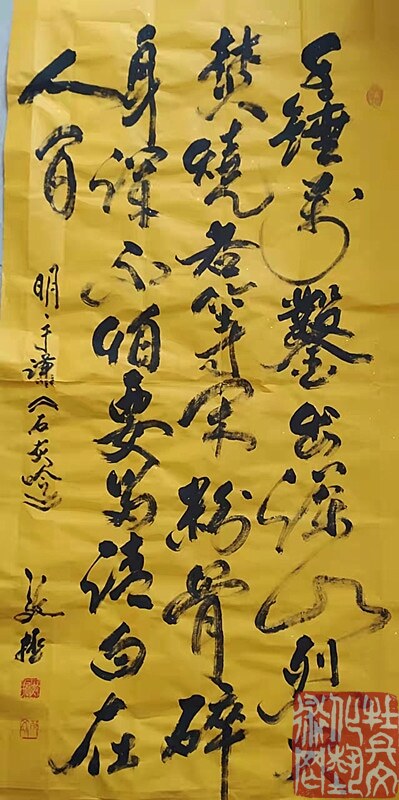 千锤萬鑿出深山烈火
焚燒若等闲粉骨碎
身浑不怕要留清白在
人间
明·于谦《石灰吟》